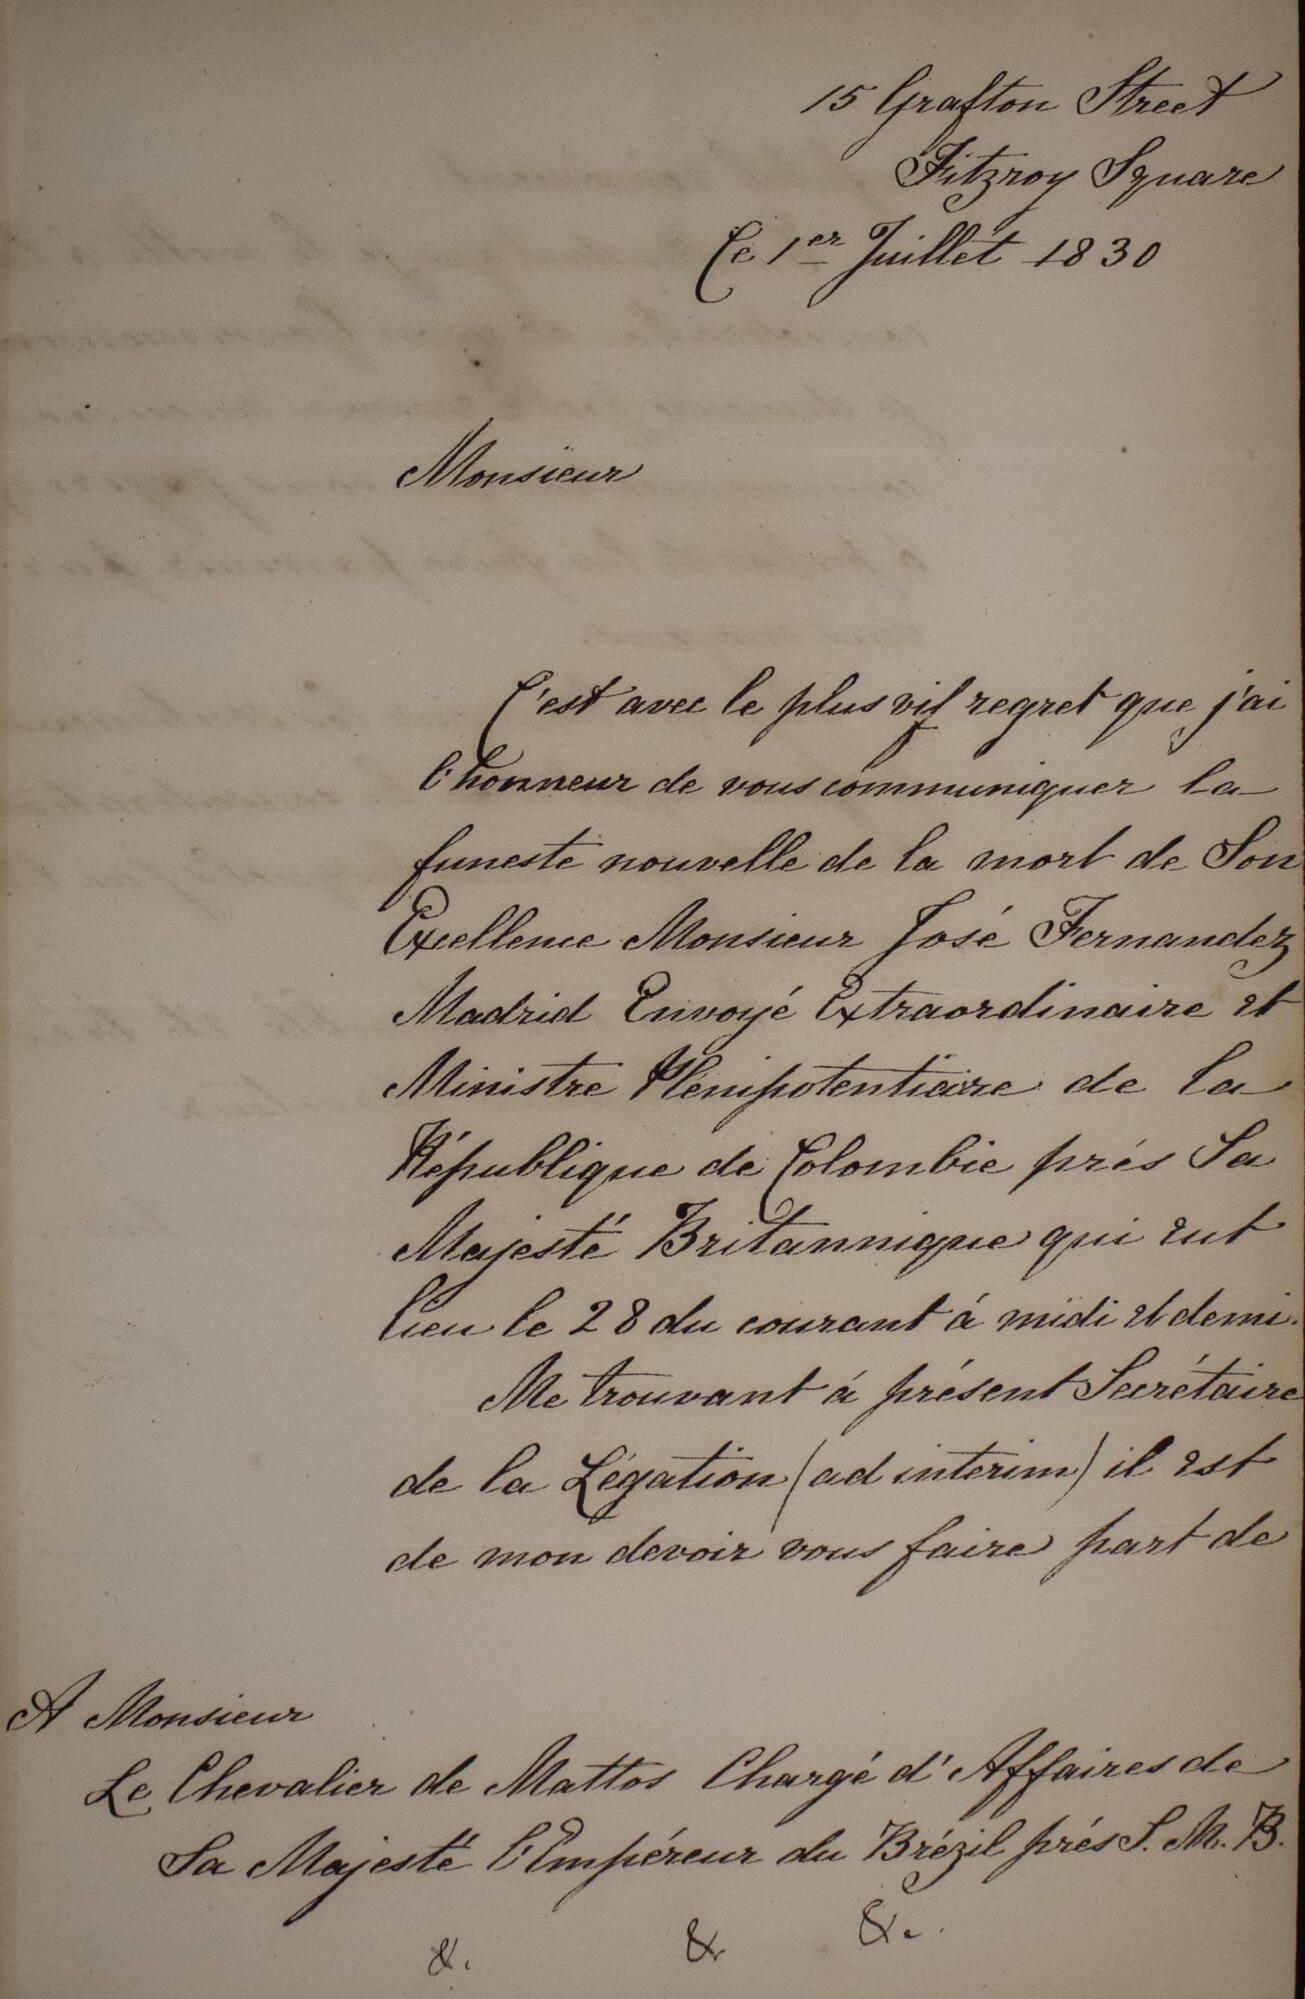 15 Grafton Street
Fitzroy Square
Ce 1er Juillet 1830
Monsieur
C'est avec le plus vif regret que j'ai
l'honneur de vous communiquer la
funeste nouvelle de la mort de Son
Excellence Monsieur José Fernandez
Madrid Envoyé Extraordinaire et
Ministre Plénipotentiaire de la
République de Colombie prés Sa
Majesté Britannique qui eut
lieu le 28 du courant á midi et demi.
Me trouvant á présent Secrétaire
de la Légation (ad interim) il est
de mon devoir vous faire part de
A Monsieur
Le Chevalier de Mattos Chargé d'Affaires de
Sa Majesté l'Empéreur du Brézil prés S. M. B.
&. & &.